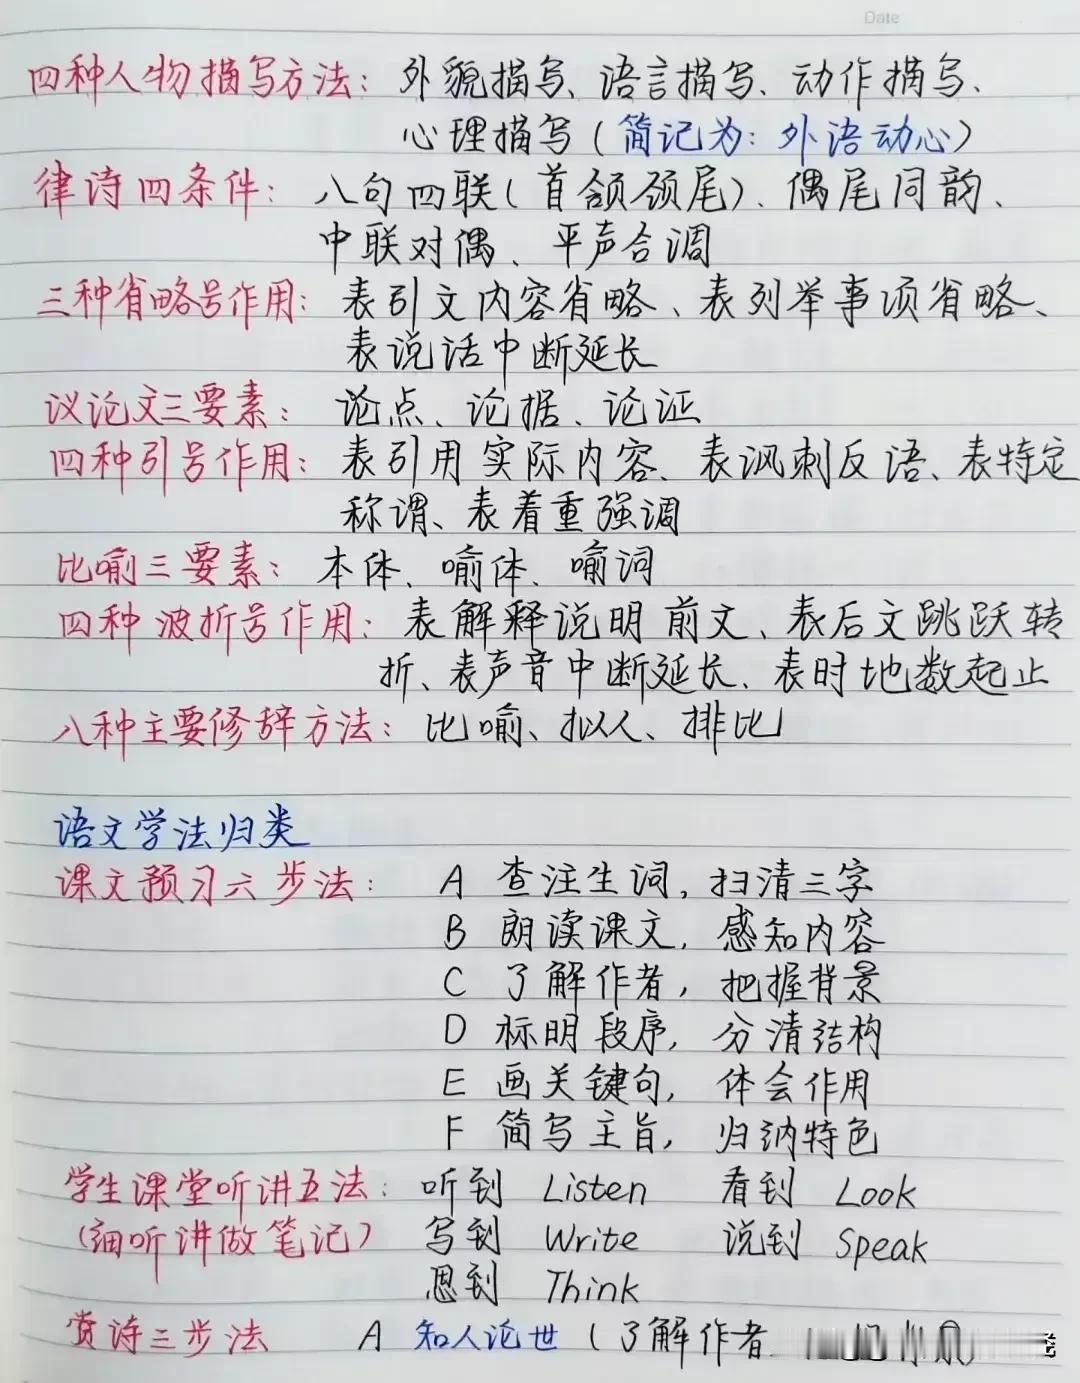 Date
四种人物描写方法：外貌描写、语言描写、动作描写、
心理描写（简记为：外语动心）
律诗四条件：八句四联（首颔颈尾）、偶尾同韵、
中联对偶、平声合调
三种省略号作用：表引文内容省略、表列举事项省略、
表说话中断延长
议论文三要素：论点、论据、论证
四种引号作用：表引用实际内容、表讽刺反语、表特定
称谓、表着重强调
比喻三要素：本体、喻体、喻词
四种波折号作用：表解释说明前文、表后文跳跃转
折、表声音中断延长、表时地数起止
八种主要修辞方法：比喻、拟人、排比
语文学法归类
课文预习六步法： A 查注生词，扫清三字
B 朗读课文，感知内容
C 了解作者，把握背景
D 标明段序，分清结构
E 画关键句，体会作用
F 简写主旨，归纳特色
学生课堂听讲五法：听到 Listen 看到 Look
（细听讲做笔记） 写到 Write 说到 Speak
思到 Think
赏诗三步法 A 知人论世（了解作者